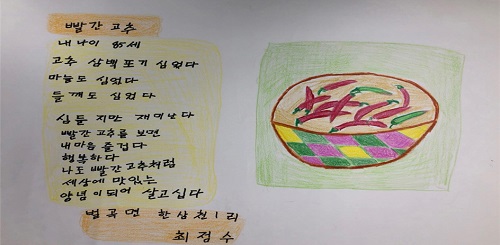 빨간 고추
내 나이 85세
고추 삼백 포기 심었다
마늘도 심었다
들깨도 심었다
심들 지만 재미난다
빨간 고추를 보면
내 마음 즐겁다
행복하다
나도 빨간 고추처럼
세상에 맛있는
양념이 되어 살고 십다
벌곡면 한삼천 1리
최정수